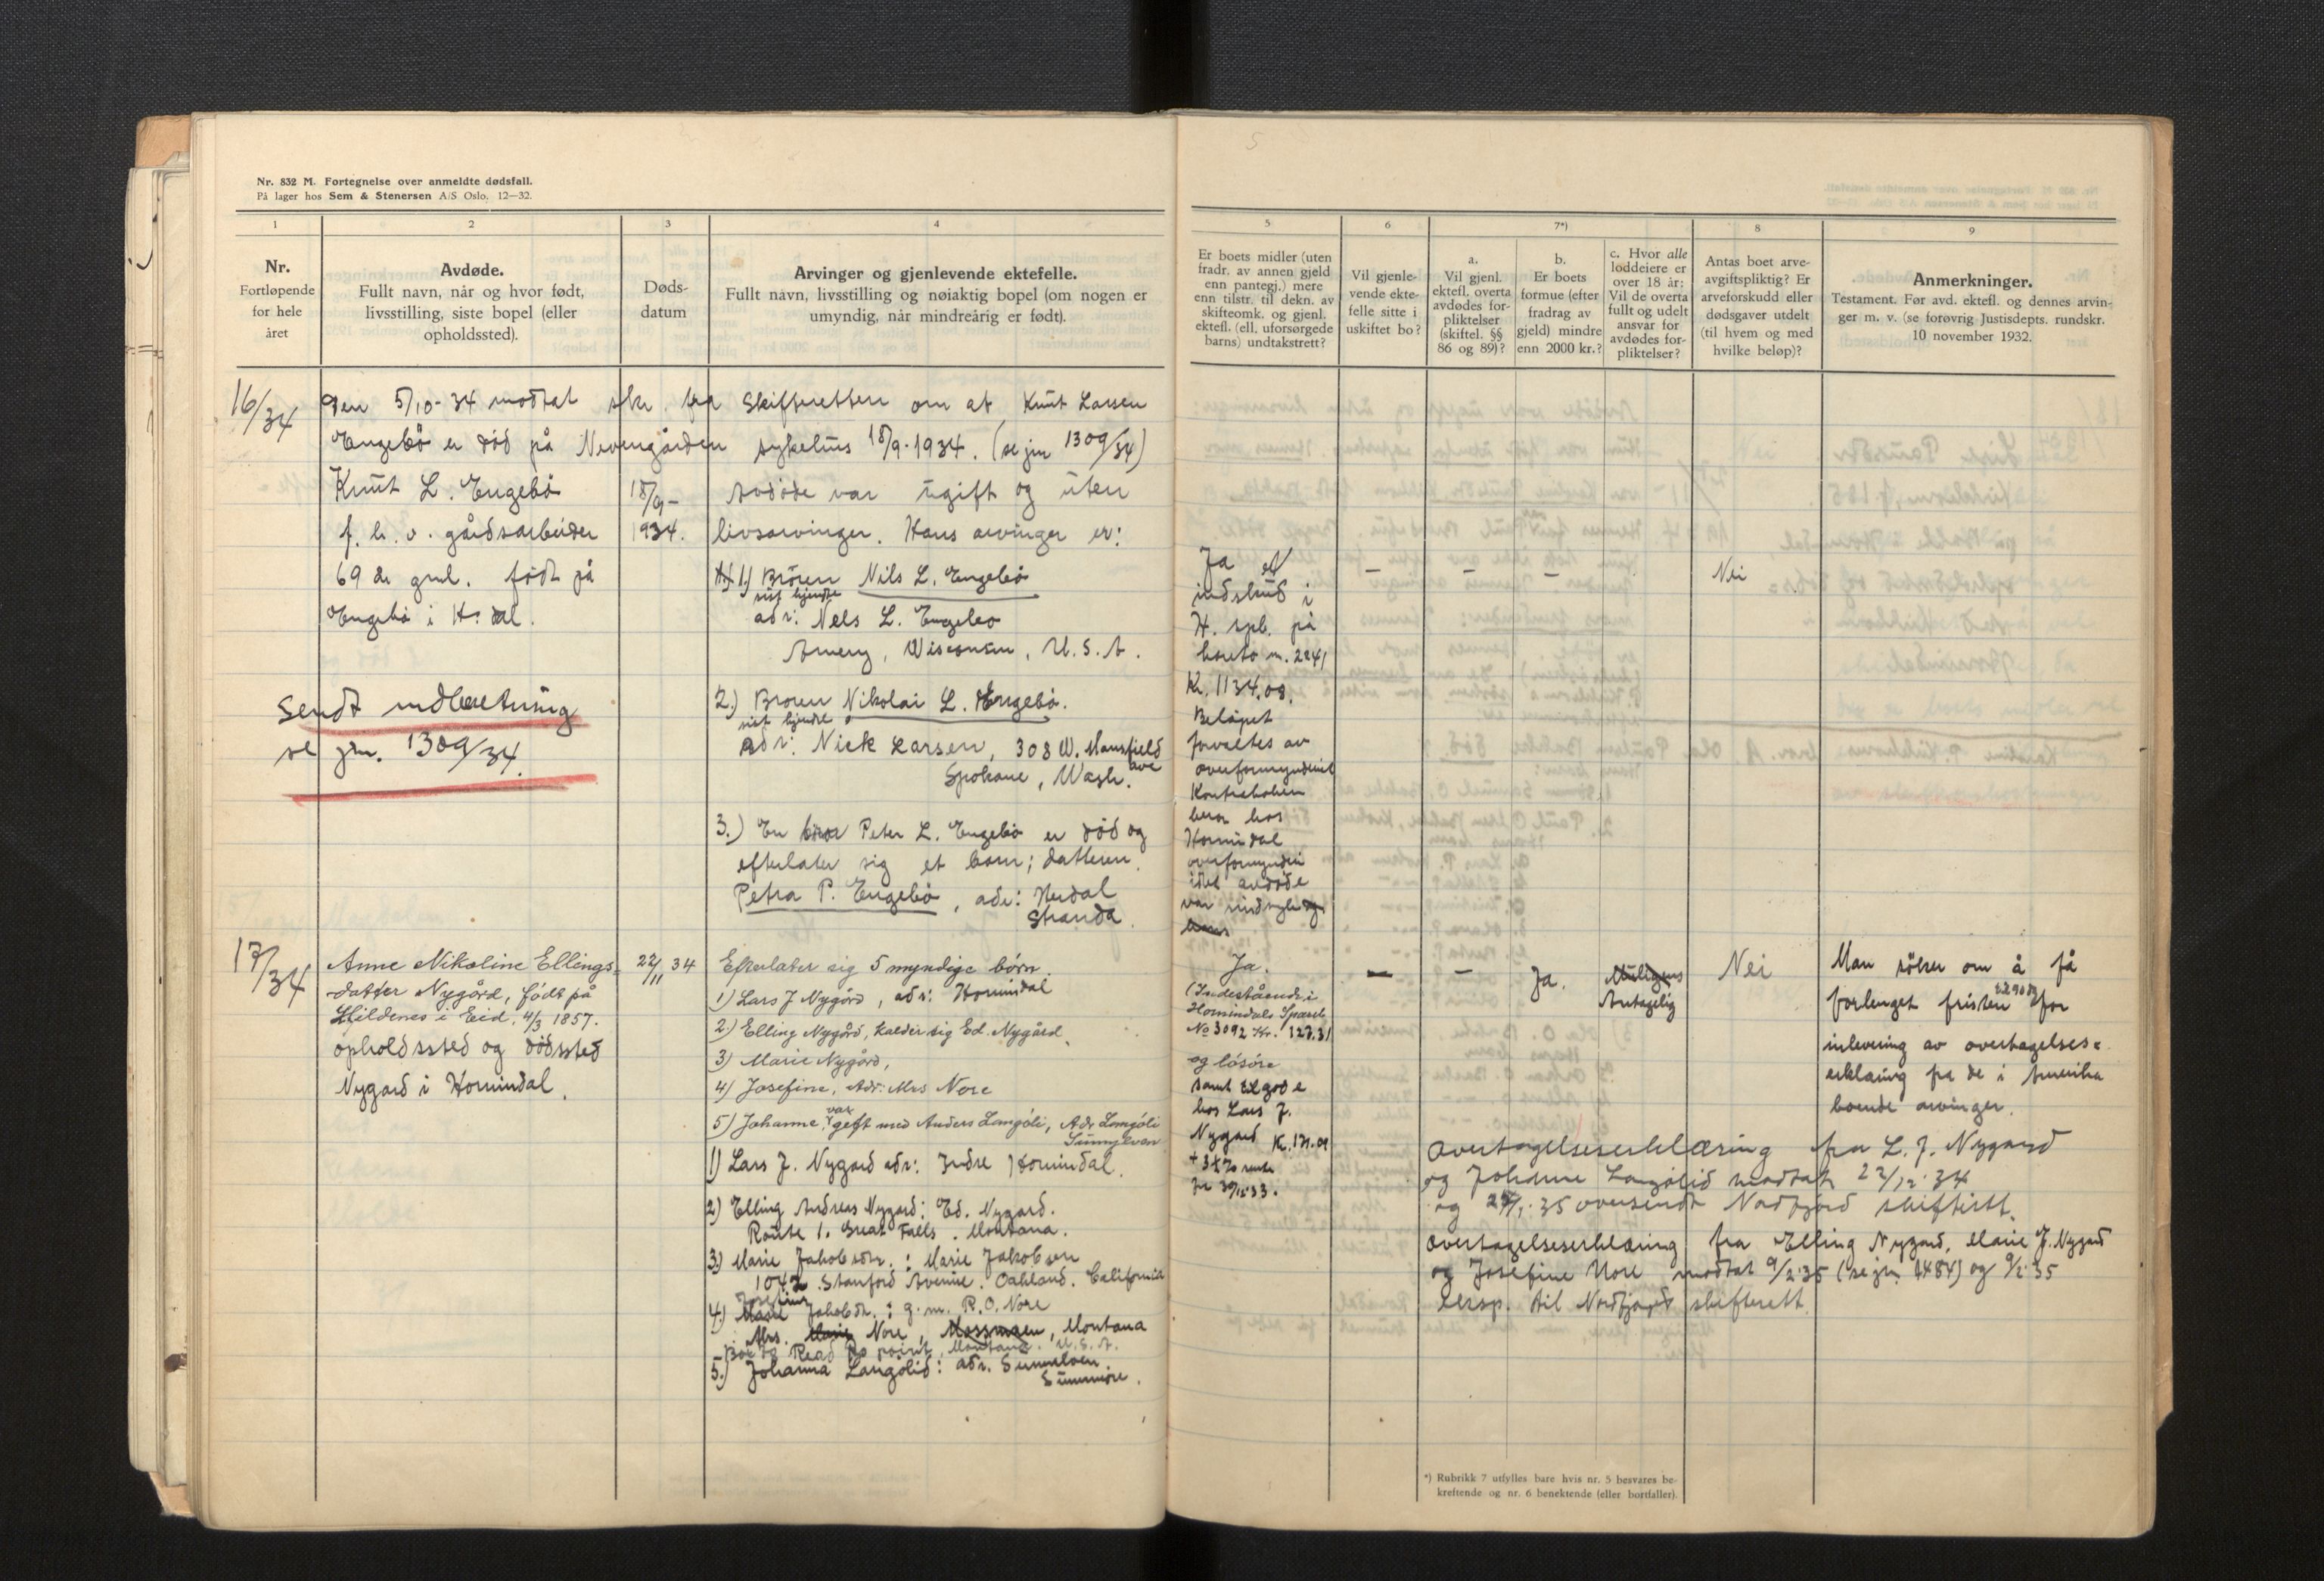 Nr. 832 M. Fortegnelse over anmeldte dødsfall.
På lager hos Sem & Stenersen A/S Oslo. 12—32.
1
2
3
4
Nr.
Fortløpende
for hele
året
Avdøde.
Fullt navn, når og hvor født,
livsstilling, siste bopel (eller
opholdssted).
Døds-
datum
Arvinger og gjenlevende ektefelle.
Fullt navn, livsstilling og nøiaktig bopel (om nogen er
umyndig, når mindreårig er født).
16/34
Den 5/10-34 modtat skr. fra Skifteretten om at Knut Larsen
Engebö er död på Nevengården sykehus 18/9-1934. (se jnr 1309/34)
Knut L. Engebö
f. h. v. gårdsarbeider
69 år gml. født på
Engebö i H:dal.
18/9-
1934.
Avdöde var ugift og uten
livsarvinger. Hans arvinger er:
1) Broren Nils L. Engebö
sist kjendte
adr: Nels L. Engebo
Amery, Wisconsin, U.S.A.
2.) Broren Nikolai L. Engebö.
sist kjendte
adr: Nick Larsen, 308 W. Mansfield
ave
Spokane, Wash.
3.) En bror Peter L. Engebö er död og
efterlater sig et barn; datteren
Petra P. Engebö, adr: Herdal
Stranda.
Sendt indberetning
se jnr. 1309/34.
17/34
Anne Nikoline Ellings-
datter Nygård, født på
Hildenes i Eid, 4/3 1857.
opholdssted og dödssted
Nygard i Hornindal.
22/11 34
Efterlater sig 5 myndige börn.
1) Lars J Nygård, adr: Hornindal
2) Elling Nygård, kalder sig Ed. Nygård.
3) Marie Nygård,
4) Josefine, Adr: Mrs Nore
5) Johanne, var gift med Anders Langöli, Adr Langöli
Sunnylven
1) Lars J. Nygard adr: Indre Hornindal.
2) Elling Andreas Nygard: Ed. Nygard.
Route 1. Great Falls. Montana.
3) Marie Jakobsdtr.: Marie Jakobsen
1042 Stanford Avenue. Oakland. California
Josefine
4.) Marie Jakobsdtr.: g. m. P. O. Nore
Mrs. Marie Nore, Montana
Box 78 Reed point, Montana. U.S.A.
5.) Johanna Langölid: adr. Sunnelven.
Sunnmöre.
5
6
7*)
8
9
Er boets midler (uten
fradr. av annen gjeld
enn pantegj.) mere
enn tilstr. til dekn. av
skifteomk. og gjenl.
ektefl. (ell. uforsørgede
barns) undtakstrett?
Vil gjenle-
vende ekte-
felle sitte i
uskiftet bo?
a.
Vil gjenl.
ektefl. overta
avdødes for-
pliktelser
(skiftel. §§
86 og 89)?
b.
Er boets
formue (efter
fradrag av
gjeld) mindre
enn 2000 kr.?
c. Hvor alle
loddeiere er
over 18 år:
Vil de overta
fullt og udelt
ansvar for
avdødes for-
pliktelser?
Antas boet arve-
avgiftspliktig? Er
arveforskudd eller
dødsgaver utdelt
(til hvem og med
hvilke beløp)?
Anmerkninger.
Testament. Før avd. ektefl. og dennes arvin-
ger m. v. (se forøvrig Justisdepts. rundskr.
10 november 1932.
Ja
indskud i
H. spb. på
konto nr. 2241
Kr. 1134.08.
Belöpet
forvaltes av
overformynderiet
Kontraboken
beror hos
Hornindal
overformynderi
idet avdöde
var
—
—
—
Nei
Ja.
(Indestående i
Hornindals Spareb
No 3092 Kr. 127.31
og lösöre
samt tilgode
hos Lars J.
Nygard Kr. 171.09
+ 3½% rente
fra 30/12-33.
—
—
Ja.
Muligens
Antagelig
Nei
Man söker om å få
forlenget fristen for
inlevering av overtagelses-
erklæring fra de i Amerika
boende arvinger.
Overtagelseserklæring fra L. J. Nygard
og Johanne Langölid modtat 22/12-34
og 25/1-35 oversendt Nordfjord skifterett.
Overtagelseserklæring fra Elling Nygard, Marie J. Nygard
og Josefine Nore modtat 9/2-35 (se jnr. 1484) og 9/2-35
eksp. til Nordfjord skifterett.
*) Rubrikk 7 utfylles bare hvis nr. 5 besvares be-
kreftende og nr. 6 benektende (eller bortfaller).